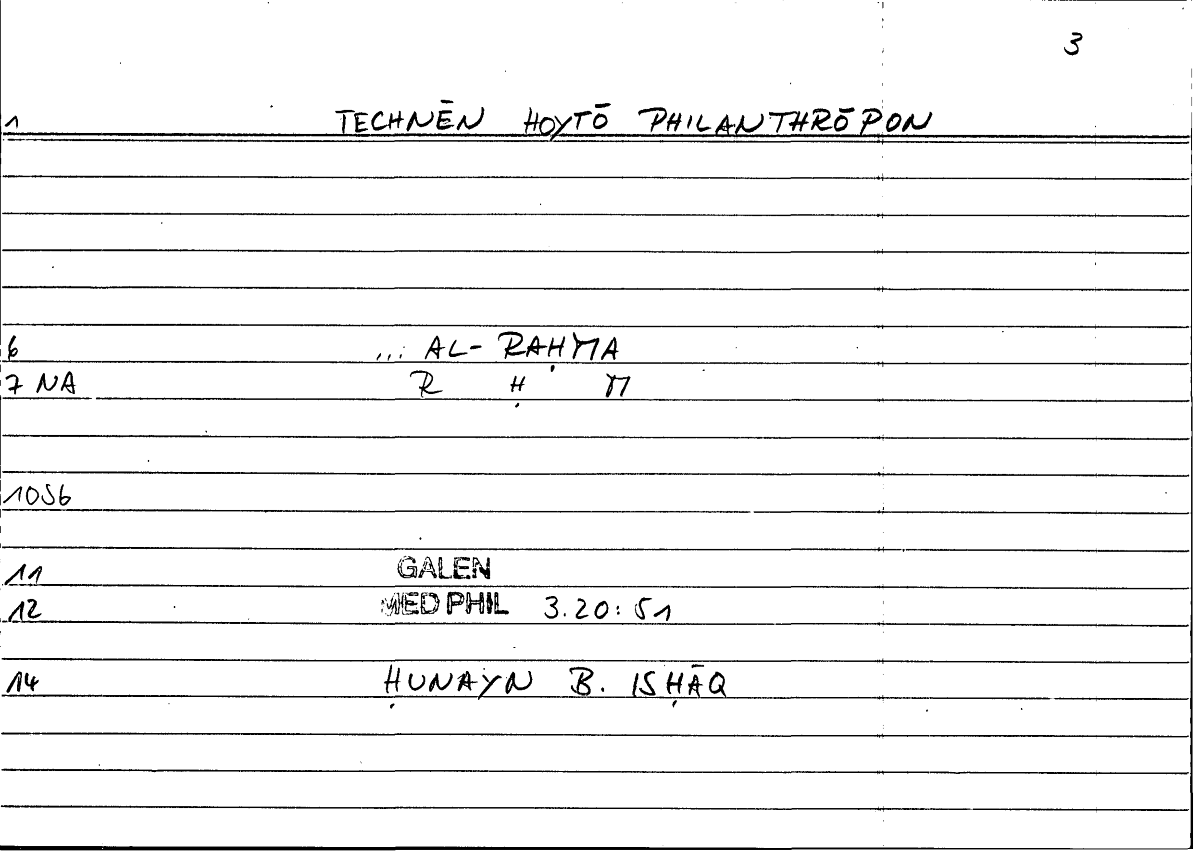 3
1 TECHNĒN HOYTŌ PHILANTHRŌPON
6 ... AL-RAḤMA
7 NA R Ḥ M
1056
11 GALEN
12 MED PHIL 3.20:51
14 ḤUNAYN B. ISḤĀQ